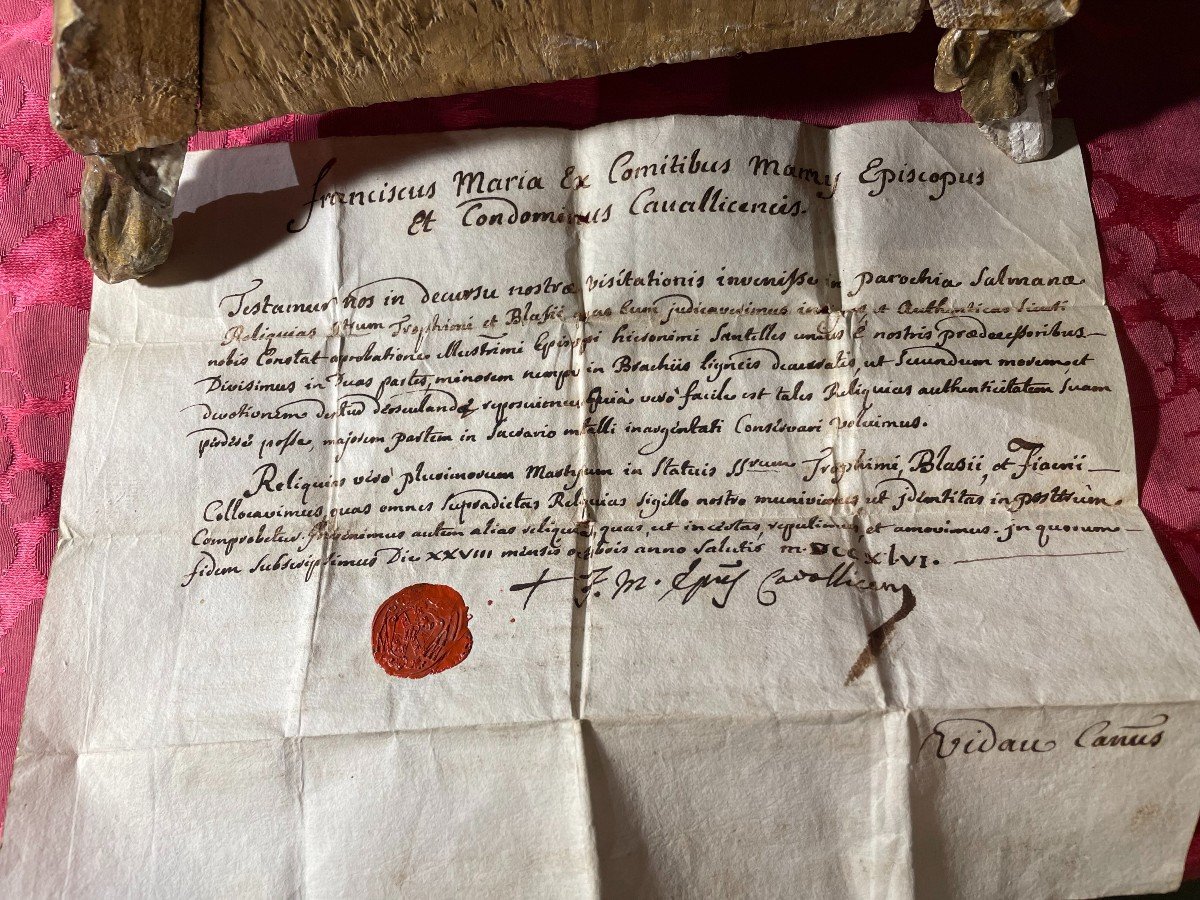 Franciscus Maria Ex Comitibus Episcopus
et Condominus Cavallicencis.
Testamur nos in decursu nostræ visitationis invenisse in parochia Salmanæ
Reliquias SSrum Trophimi et Blasii, quas cum judicaverimus et Authenticas sicuti
nobis Constat aprobatione illustrimi Episcopi hieronimi Santelles unius è nostris prædecessoribus
Divisimus in duas partes, minorem nempe in Brachiis ligneis deauratis, ut secundum morem, et
devotionem reposuimus, quià verò facile est tales Reliquias authenticitatem suam
perdere posse, majorem partem in sacrario inargentati Conservari voluimus.
Reliquias verò plurimorum Martyrum in statuis SSrum Trophimi, Blasii, et Fiacrii
Collocavimus, quas omnes supradictas Reliquias sigillo nostro munivimus ut jdentitas in posterùm
Comprobetur. jnvenimus autem alias reliquias, quas, ut incertas, repulimus, et amovimus. jn quorum
fidem subscripsimus Die XXVIII mensis octobris anno salutis M.DCCXLVI.
+ F. M. Epus Cavallicen
Vidau Canus